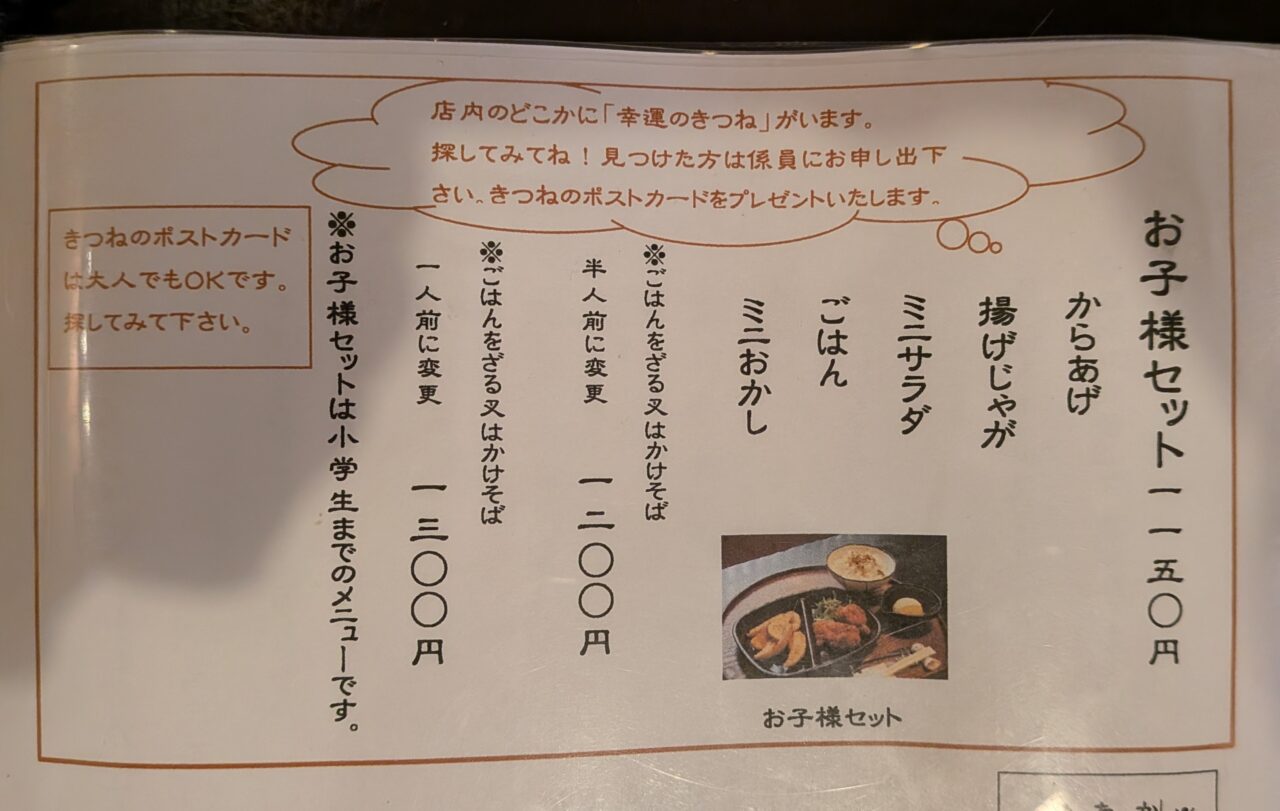 店内のどこかに「幸運のきつね」がいます。
探してみてね！見つけた方は係員にお申し出下
さい。きつねのポストカードをプレゼントいたします。
お子様セット 一一五〇円
からあげ
揚げじゃが
ミニサラダ
ごはん
ミニおかし
お子様セット
※ごはんをざる又はかけそば
半人前に変更 一二〇〇円
※ごはんをざる又はかけそば
一人前に変更 一三〇〇円
※お子様セットは小学生までのメニューです。
きつねのポストカード
は大人でもOKです。
探してみて下さい。